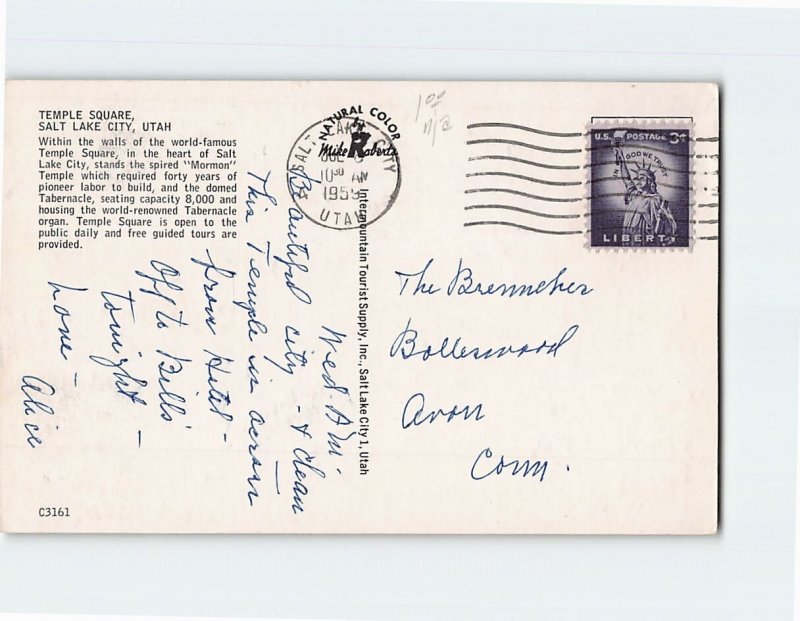 TEMPLE SQUARE,
SALT LAKE CITY, UTAH
Within the walls of the world-famous
Temple Square, in the heart of Salt
Lake City, stands the spired "Mormon"
Temple which required forty years of
pioneer labor to build, and the domed
Tabernacle, seating capacity 8,000 and
housing the world-renowned Tabernacle
organ. Temple Square is open to the
public daily and free guided tours are
provided.
C3161
NATURAL COLOR
by
Mike Roberts
SALT LAKE CITY
10 30 AM
UTAH
1 00
n/c
U.S. POSTAGE 3¢
IN GOD WE TRUST
LIBERTY
Intermountain Tourist Supply, Inc., Salt Lake City 1, Utah
Wed. A.M.
Beautiful city - & clean
This Temple is across
from Hotel -
Off to Bills'
tonight -
Love -
Alice
The Brenneker
Avon
Conn.